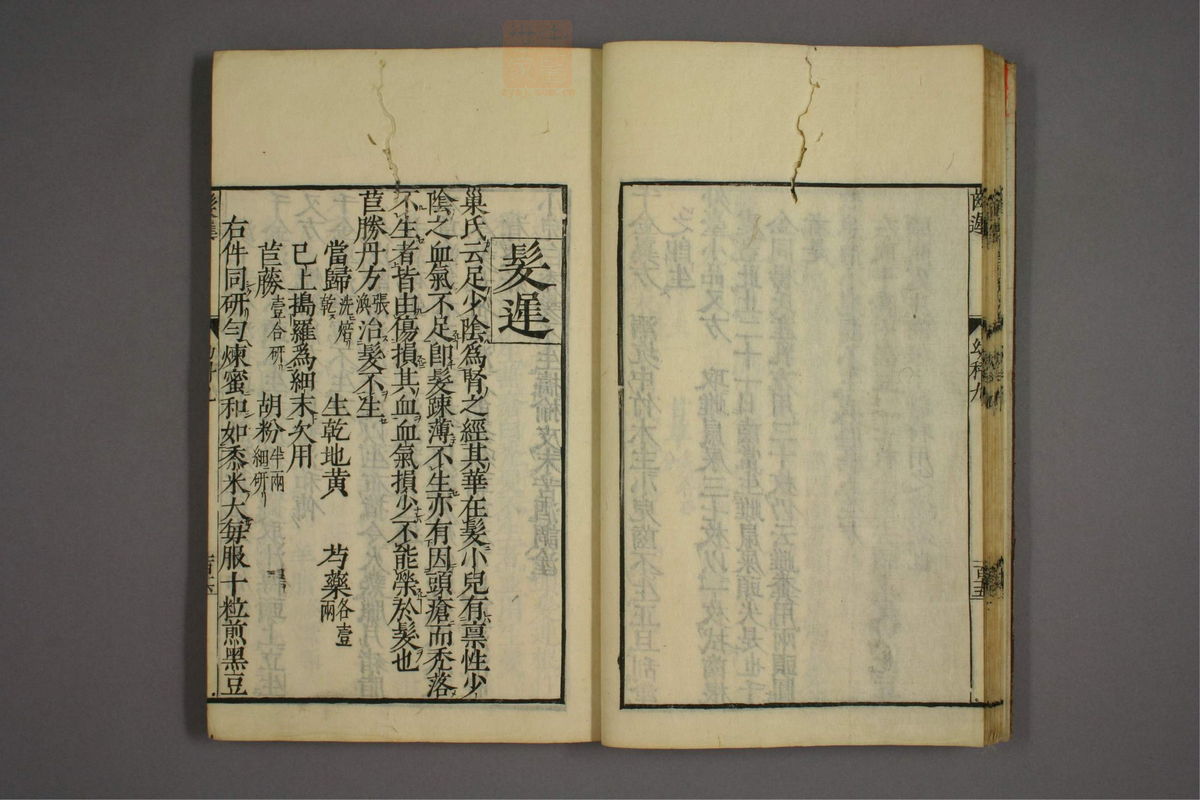 齒遲
幼科九
百五
髮遲
巢氏云足少陰爲腎之經其華在髮小兒有禀性少
陰之血氣不足卽髮踈薄不生亦有因頭瘡而禿落
不生者皆由傷損其血血氣損少不能榮於髮也
苣勝丹方張渙治髮不生
當歸洗焙乾 生乾地黄 芍藥各壹兩
已上搗羅爲細末次用
苣藤壹合研 胡粉半兩細研
右件同研勻煉蜜和如黍米大每服十粒煎黑豆